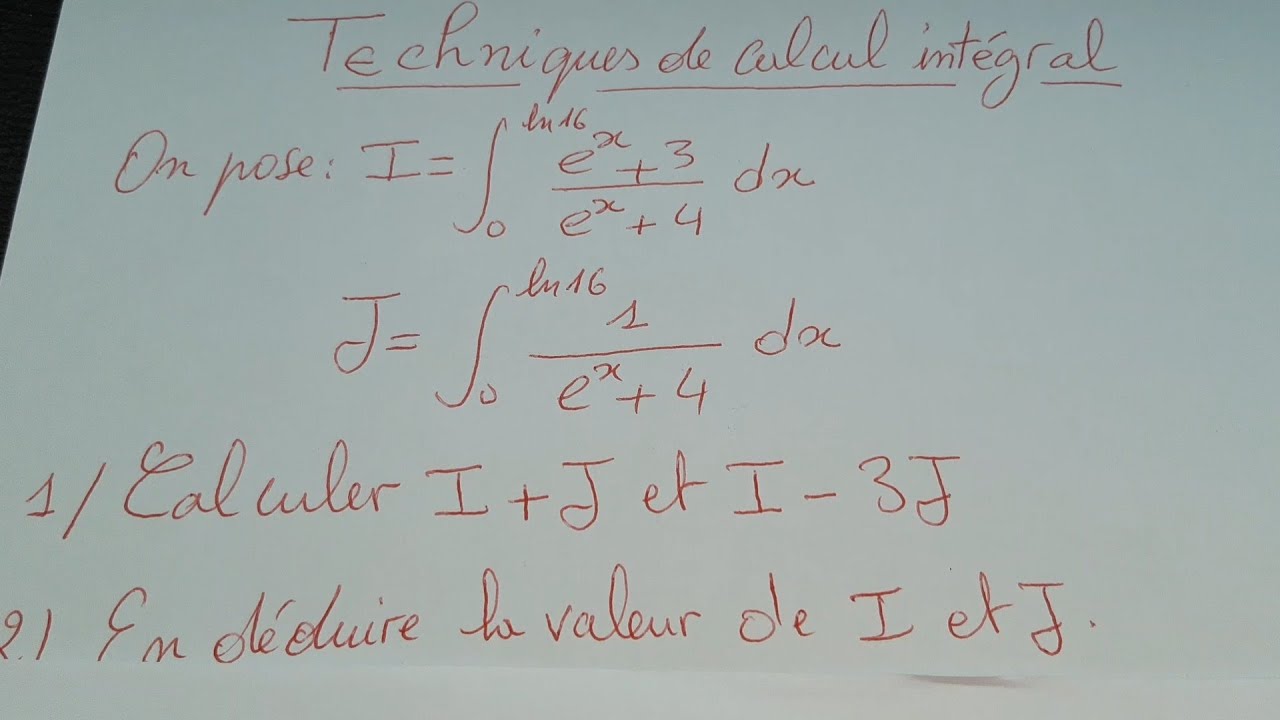 Techniques de calcul intégral
On pose: I = ∫₀^{ln16} (e^x + 3)/(e^x + 4) dx
J = ∫₀^{ln16} 1/(e^x + 4) dx
1/ Calculer I + J et I - 3J
2.) En déduire la valeur de I et J.